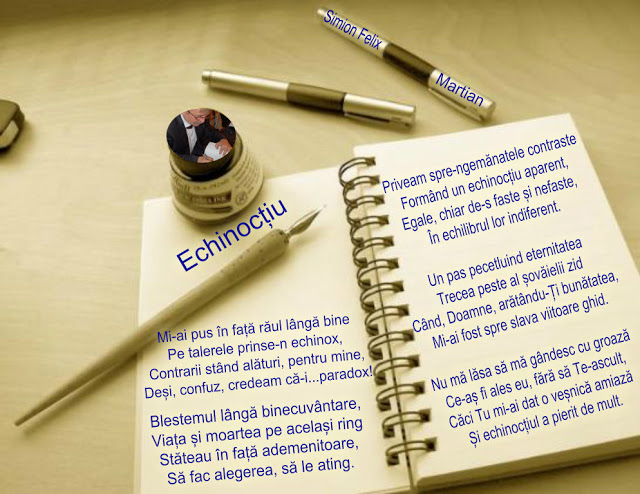 Simion Felix
Martian
Echinocțiu
Mi-ai pus în față răul lângă bine
Pe talerele prinse-n echinox,
Contrarii stând alături, pentru mine,
Deși, confuz, credeam că-i...paradox!
Blestemul lângă binecuvântare,
Viața și moartea pe același ring
Stăteau în față ademenitoare,
Să fac alegerea, să le ating.
Priveam spre-ngemănatele contraste
Formând un echinocțiu aparent,
Egale, chiar de-s faste și nefaste,
În echilibrul lor indiferent.
Un pas pecetluind eternitatea
Trecea peste al șovăielii zid
Când, Doamne, arătându-Ți bunătatea,
Mi-ai fost spre slava viitoare ghid.
Nu mă lăsa să mă gândesc cu groază
Ce-aș fi ales eu, fără să Te-ascult,
Căci Tu mi-ai dat o veșnică amiază
Și echinocțiul a pierit de mult.